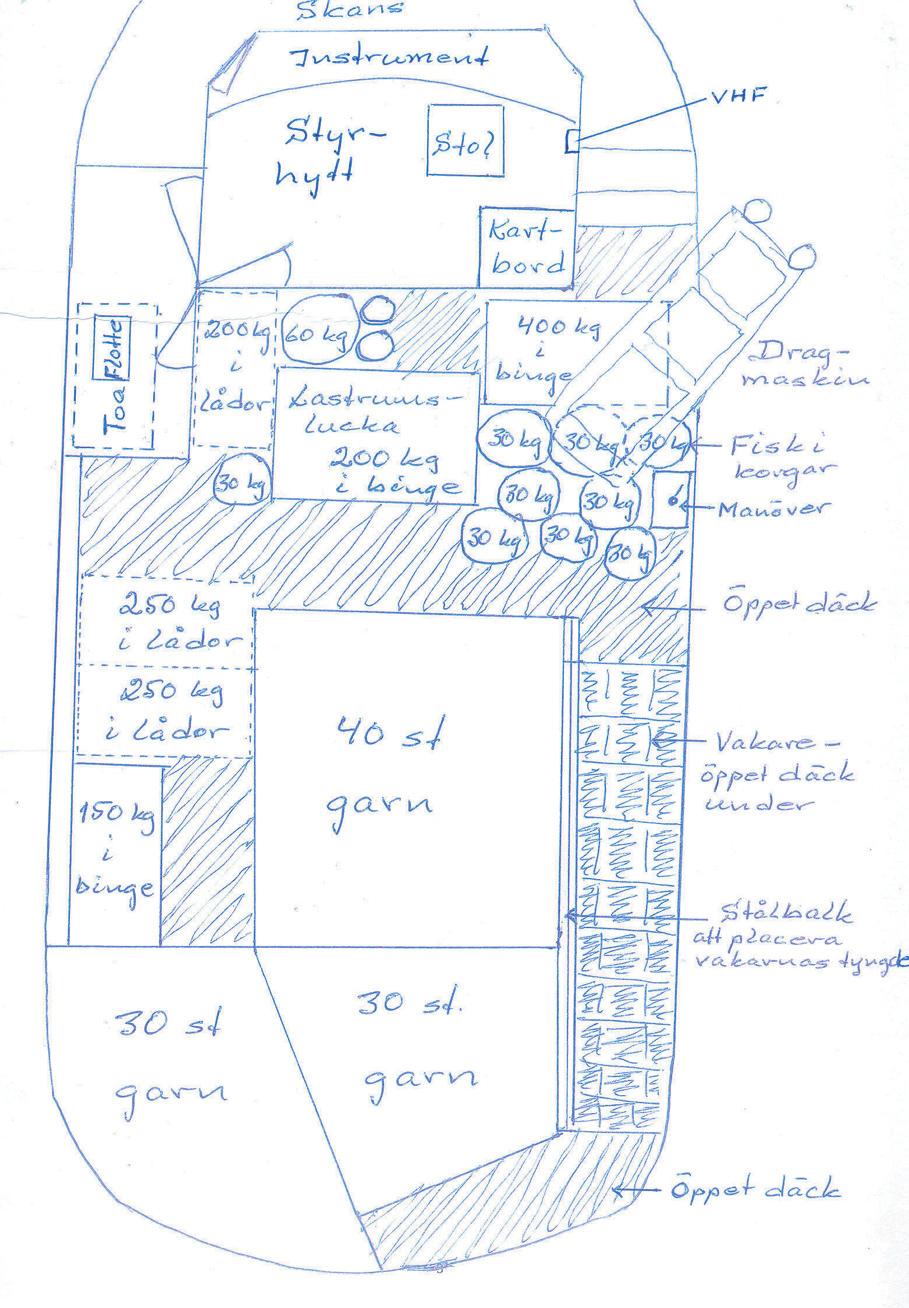 Skans
Instrument
VHF
Styr-
hytt
Stol
Kart-
bord
Toa
Flotte
200kg
i
lådor
60 kg
400 kg
i
binge
Drag-
maskin
Lastrums-
lucka
200 kg
i binge
30 kg
30 kg
30 kg
Fisk i
korgar
30 kg
30 kg
30 kg
Manöver
30 kg
30 kg
30 kg
Öppet däck
250 kg
i lådor
250 kg
i lådor
40 st
garn
Vakare -
öppet däck
under
150 kg
i
binge
Stålbalk
att placera
vakarnas tyngde
30 st
garn
30 st.
garn
Öppet däck